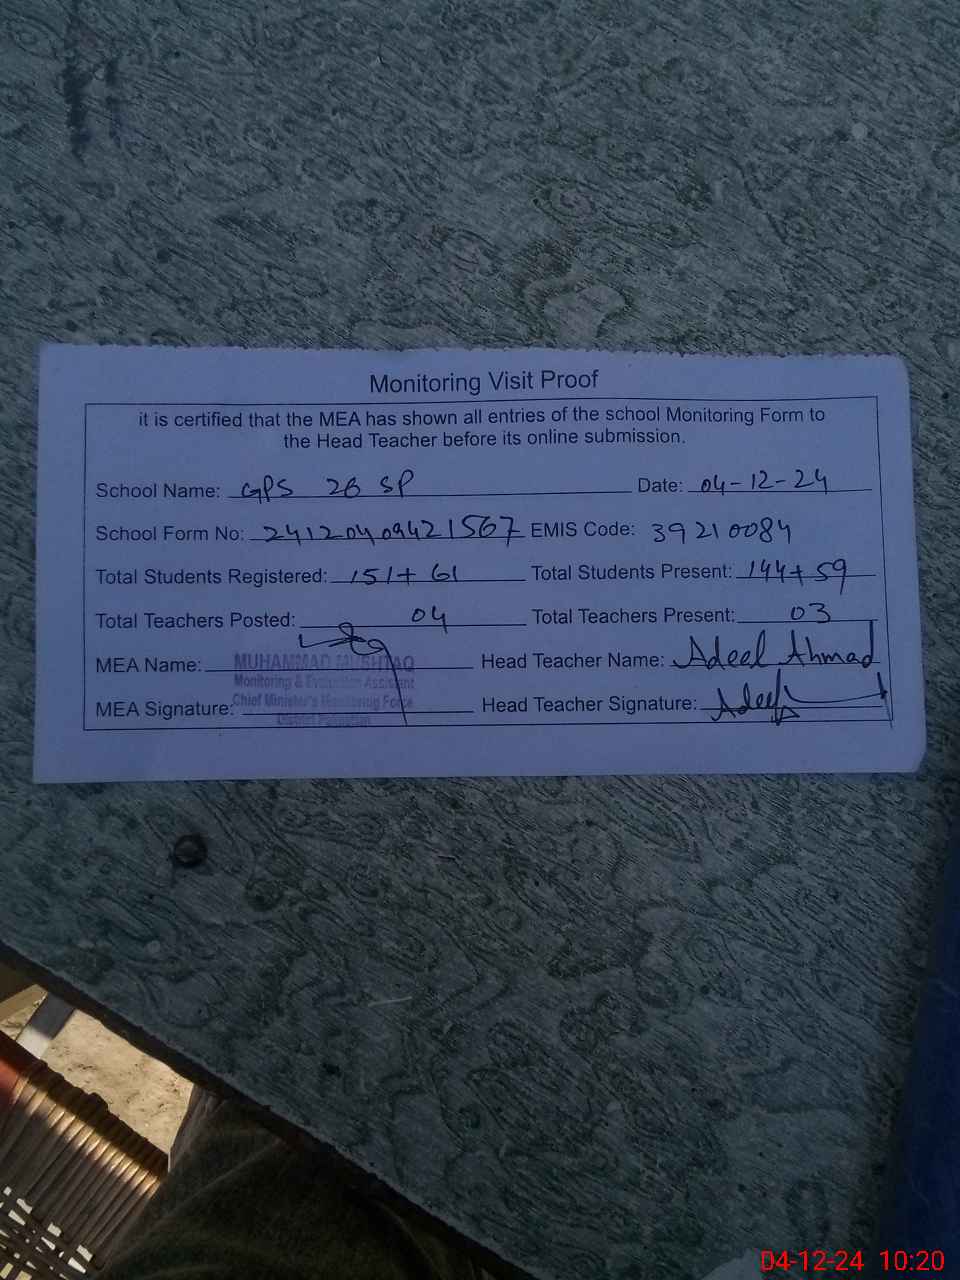 Monitoring Visit Proof
it is certified that the MEA has shown all entries of the school Monitoring Form to
the Head Teacher before its online submission.
School Name: GPS 26 SP Date: 04-12-24
School Form No: 24120409421567 EMIS Code: 39210084
Total Students Registered: 151+ 61 Total Students Present: 144+59
Total Teachers Posted: 04 Total Teachers Present: 03
MEA Name: MUHAMMAD MUSHTAQ Head Teacher Name: Adeel Ahmad
Monitoring & Evaluation Assistant
Chief Minister's Monitoring Force
MEA Signature: Head Teacher Signature: Adeel
District
04-12-24 10:20